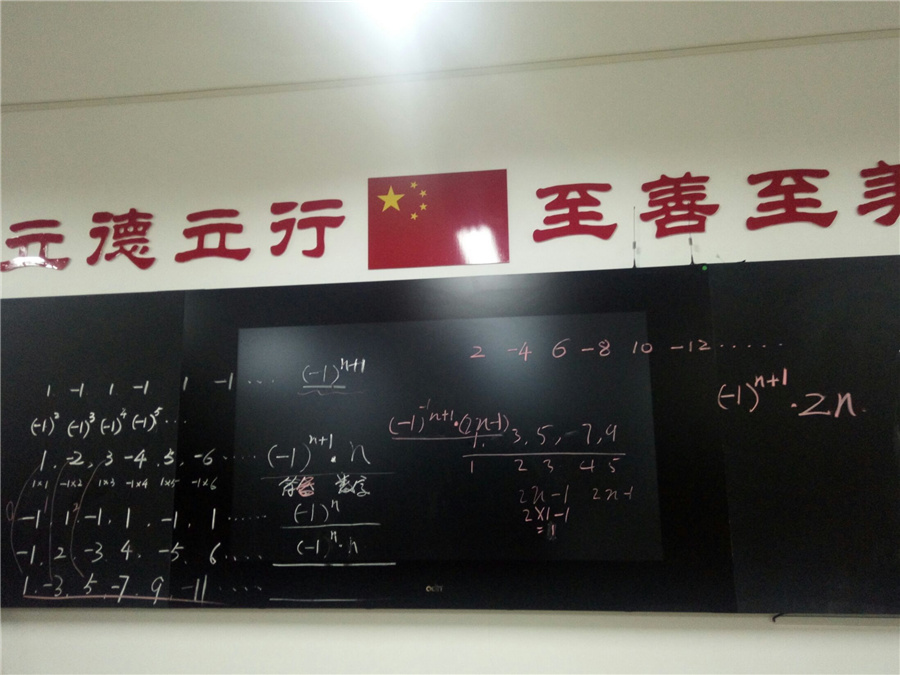 立德立行 至善至美
2 -4 6 -8 10 -12 ······
1 -1 1 -1 1 -1 ··· (-1)^{n+1}
(-1)^{n+1}·2n
(-1)^2 (-1)^3 (-1)^4 (-1)^5 ···
(-1)^{n+1}·(2n-1)
1, 3, 5, -7, 9
1, -2, 3 -4, 5, -6 ····· (-1)^{n+1}·n
1 2 3 4 5
1×1 -1×2 1×3 -1×4 1×5 -1×6
符号 数字
2n-1 2n-1
-1 1, -1, 1, -1, 1 ······ (-1)^n
2×1-1
=1
-1, 2, -3 4, -5, 6 ····· (-1)^n·n
1, -3, 5, -7, 9, -11 ·····